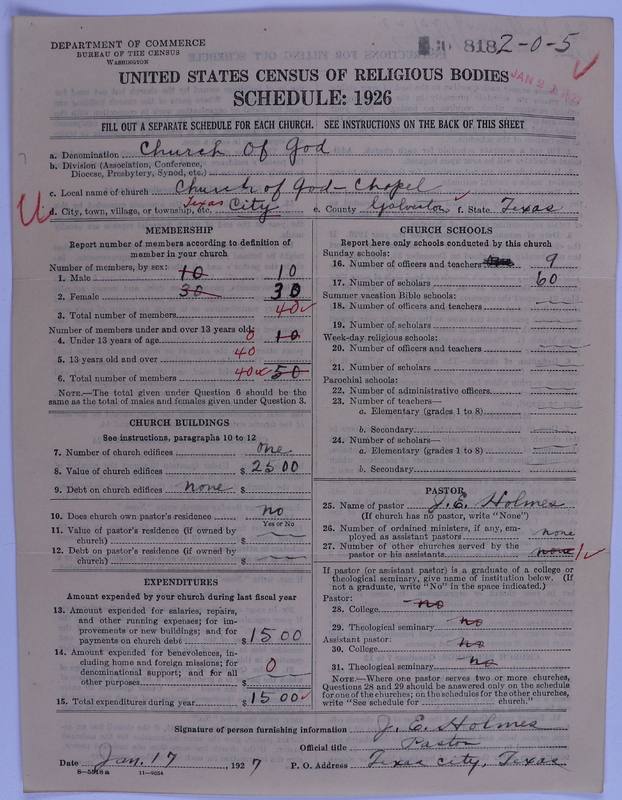 DEPARTMENT OF COMMERCE
BUREAU OF THE CENSUS
WASHINGTON
8182-0-5
UNITED STATES CENSUS OF RELIGIOUS BODIES
JAN 2
SCHEDULE: 1926
FILL OUT A SEPARATE SCHEDULE FOR EACH CHURCH. SEE INSTRUCTIONS ON THE BACK OF THIS SHEET
a. Denomination Church Of God
b. Division (Association, Conference,
Diocese, Presbytery, Synod, etc.)
c. Local name of church Church of God - Chapel
U
d. City, town, village, or township, etc. Texas City e. County Galveston f. State Texas
MEMBERSHIP
Report number of members according to definition of
member in your church
Number of members, by sex:
1. Male 10 10
2. Female 30 30
3. Total number of members 40
Number of members under and over 13 years old:
4. Under 13 years of age 0 10
5. 13 years old and over 40
6. Total number of members 40 50
NOTE.—The total given under Question 6 should be the
same as the total of males and females given under Question 3.
CHURCH BUILDINGS
See instructions, paragraphs 10 to 12
7. Number of church edifices one
8. Value of church edifices $ 2500
9. Debt on church edifices none $
10. Does church own pastor's residence no
Yes or No
11. Value of pastor's residence (if owned by
church) $
12. Debt on pastor's residence (if owned by
church) $
EXPENDITURES
Amount expended by your church during last fiscal year
13. Amount expended for salaries, repairs,
and other running expenses; for im-
provements or new buildings; and for
payments on church debt $ 1500
14. Amount expended for benevolences, in-
cluding home and foreign missions; for
denominational support; and for all
other purposes 0 $
15. Total expenditures during year $ 1500
CHURCH SCHOOLS
Report here only schools conducted by this church
Sunday schools:
16. Number of officers and teachers 9
17. Number of scholars 60
Summer vacation Bible schools:
18. Number of officers and teachers
19. Number of scholars
Week-day religious schools:
20. Number of officers and teachers
21. Number of scholars
Parochial schools:
22. Number of administrative officers
23. Number of teachers—
a. Elementary (grades 1 to 8)
b. Secondary
24. Number of scholars—
a. Elementary (grades 1 to 8)
b. Secondary
PASTOR
25. Name of pastor J. E. Holmes
(If church has no pastor, write "None")
26. Number of ordained ministers, if any, em-
ployed as assistant pastors none
27. Number of other churches served by the
pastor or his assistants none 1
If pastor (or assistant pastor) is a graduate of a college or
theological seminary, give name of institution below. (If
not a graduate, write "No" in the space indicated.)
Pastor:
28. College no
29. Theological seminary no
Assistant pastor:
30. College no
31. Theological seminary no
NOTE.—Where one pastor serves two or more churches,
Questions 28 and 29 should be answered only on the schedule
for one of the churches; on the schedules for the other churches,
write "See schedule for church."
Signature of person furnishing information J. E. Holmes
Official title Pastor
Date Jan. 17, 1927 P. O. Address Texas City, Texas
8—5518a 11—9054